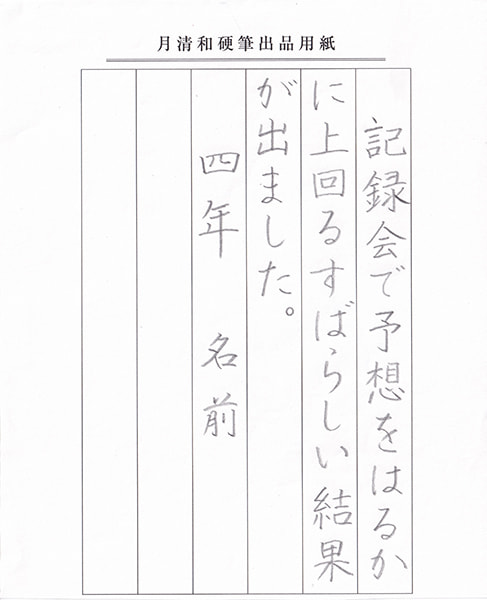 月清和硬筆出品用紙
記録会で予想をはるか
に上回るすばらしい結果
が出ました。
四年 名前